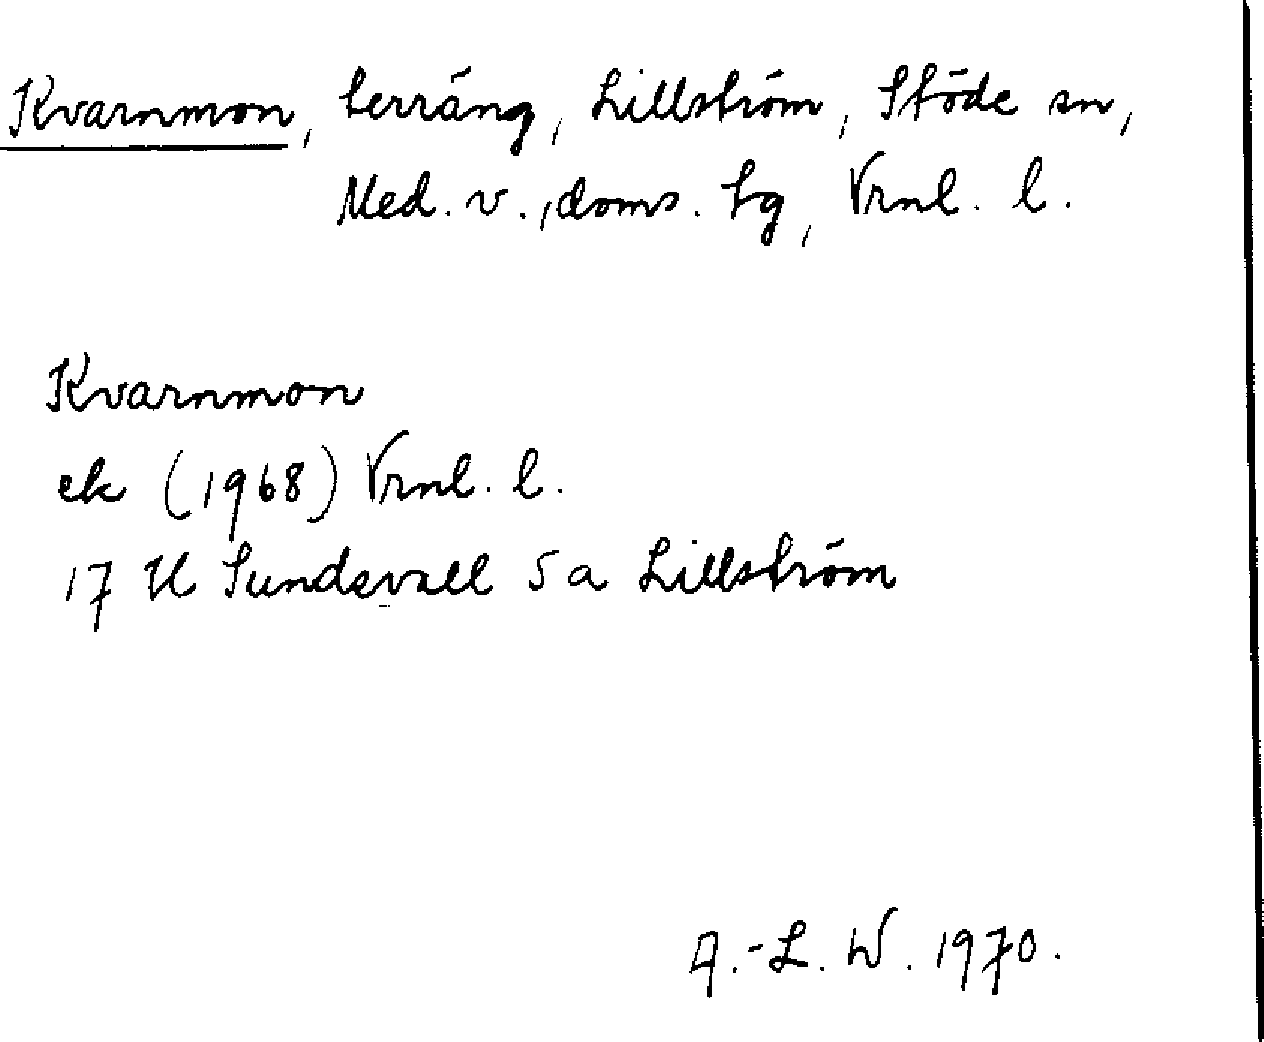 Kvarnmon, terräng, Lillström, Stöde sn,
Med. v., doms. tg, Vrnl. l.
Kvarnmon
ek (1968) Vrnl. l.
17 H Sundsvall 5 a Lillström
A.-L. W. 1970.